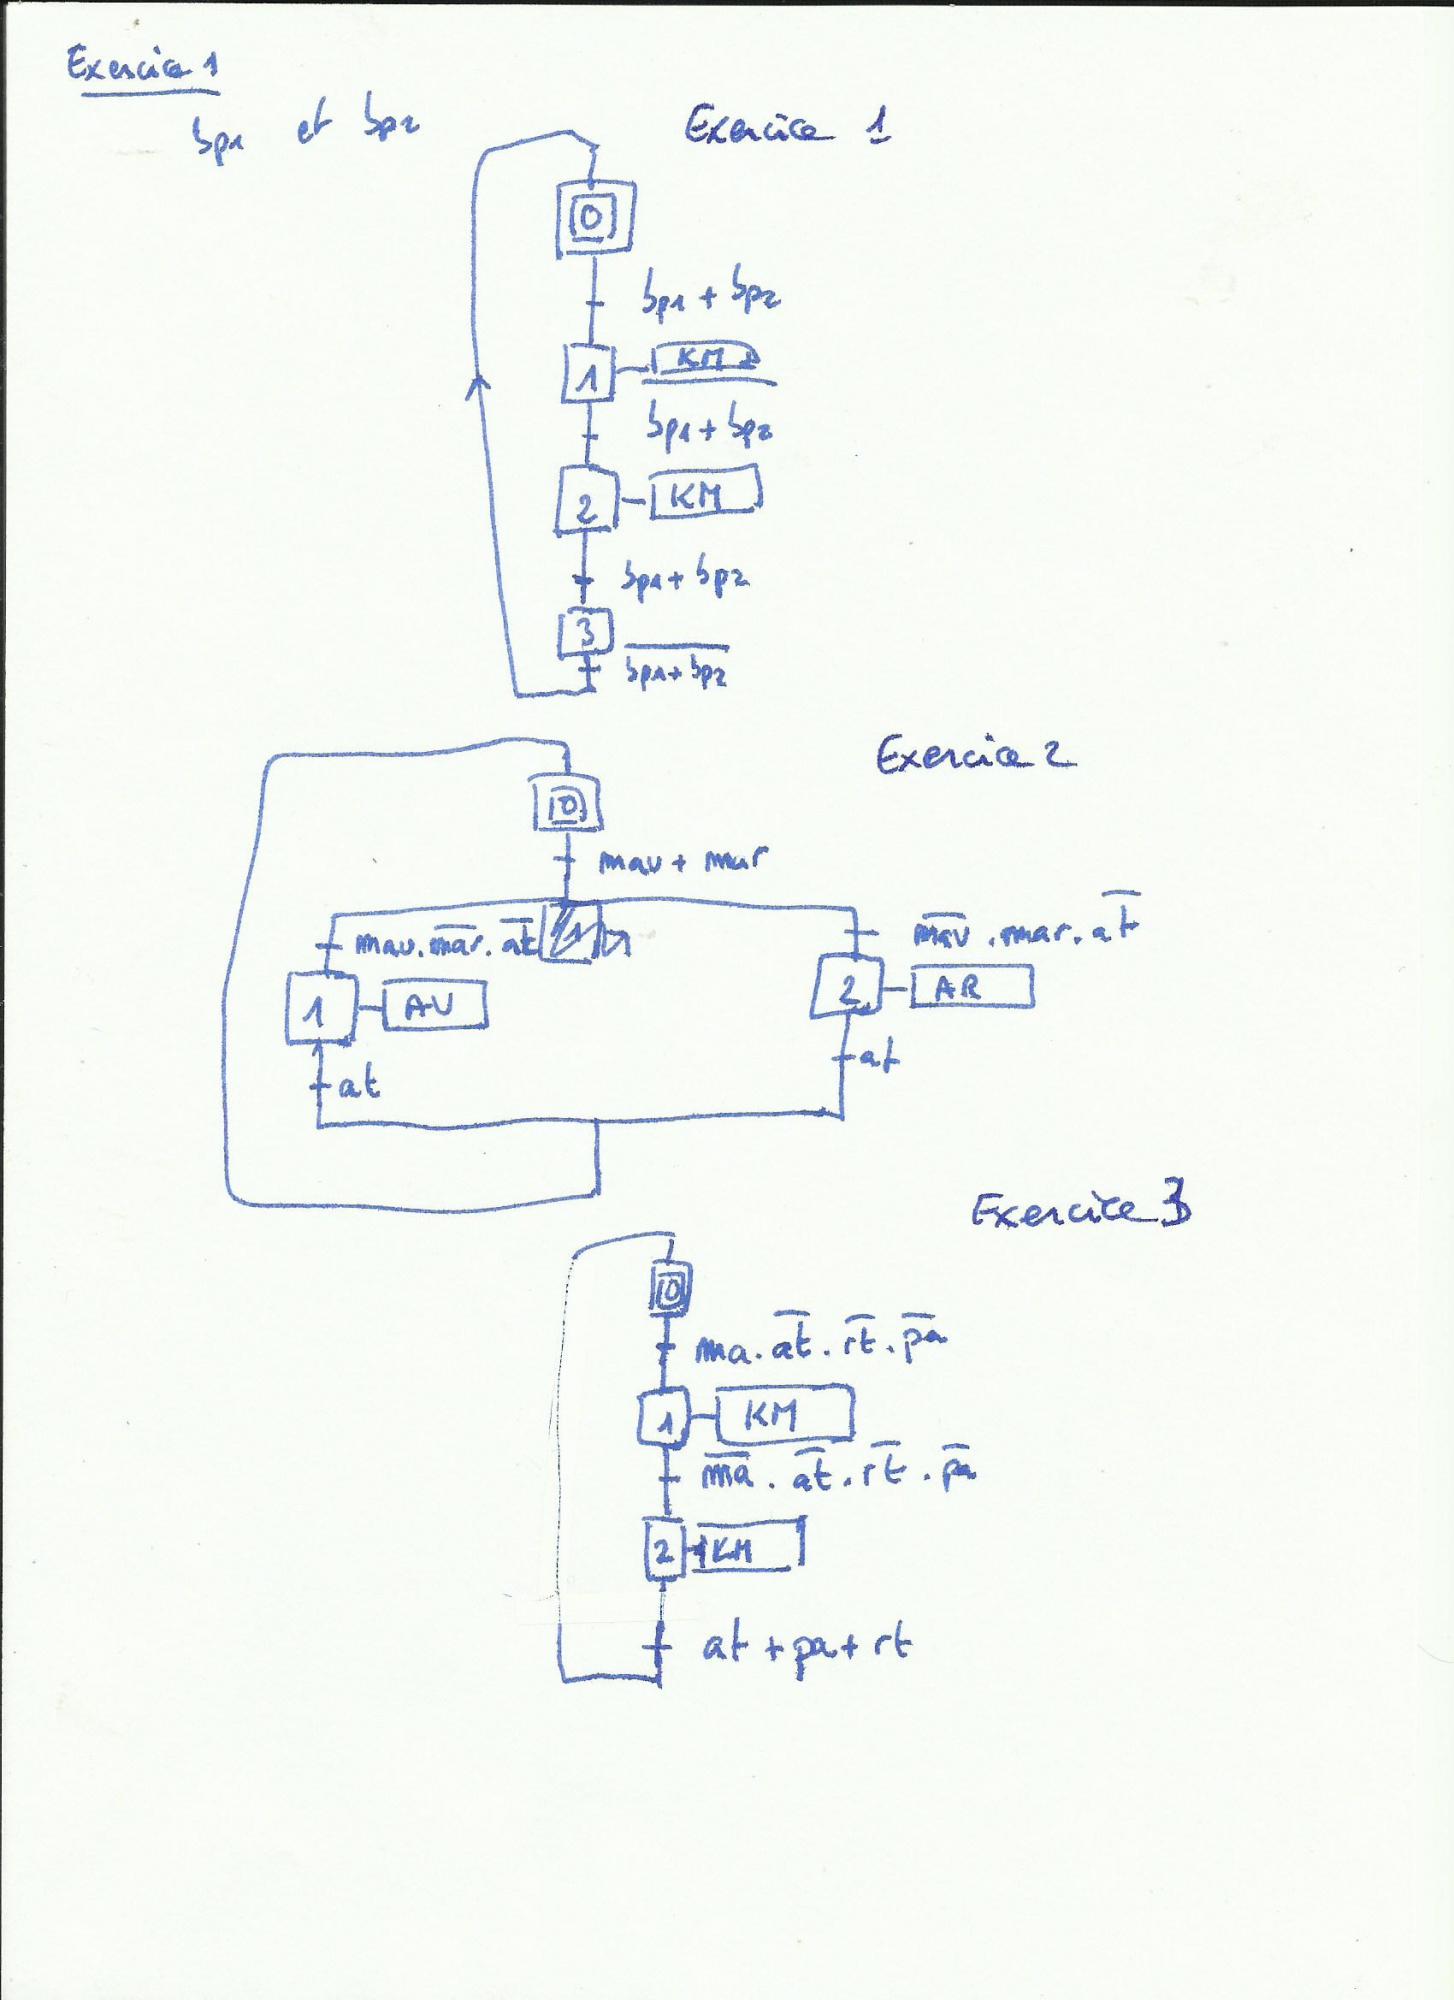 Exercice 1
bp1 et bp2
Exercice 1
0
bp1 + bp2
1 KM
b̅p̅1̅ ̅+̅ ̅b̅p̅2̅
2 KM
bp1 + bp2
3
b̅p̅1̅ ̅+̅ ̅b̅p̅2̅
Exercice 2
0
mav + mar
mav . m̅a̅r̅ . a̅t̅
m̅a̅v̅ . mar . a̅t̅
1 AV
2 AR
at
at
Exercice 3
0
ma . a̅t̅ . r̅t̅ . p̅a̅
1 KM
m̅a̅ . a̅t̅ . r̅t̅ . p̅a̅
2 KM
at + pa + rt